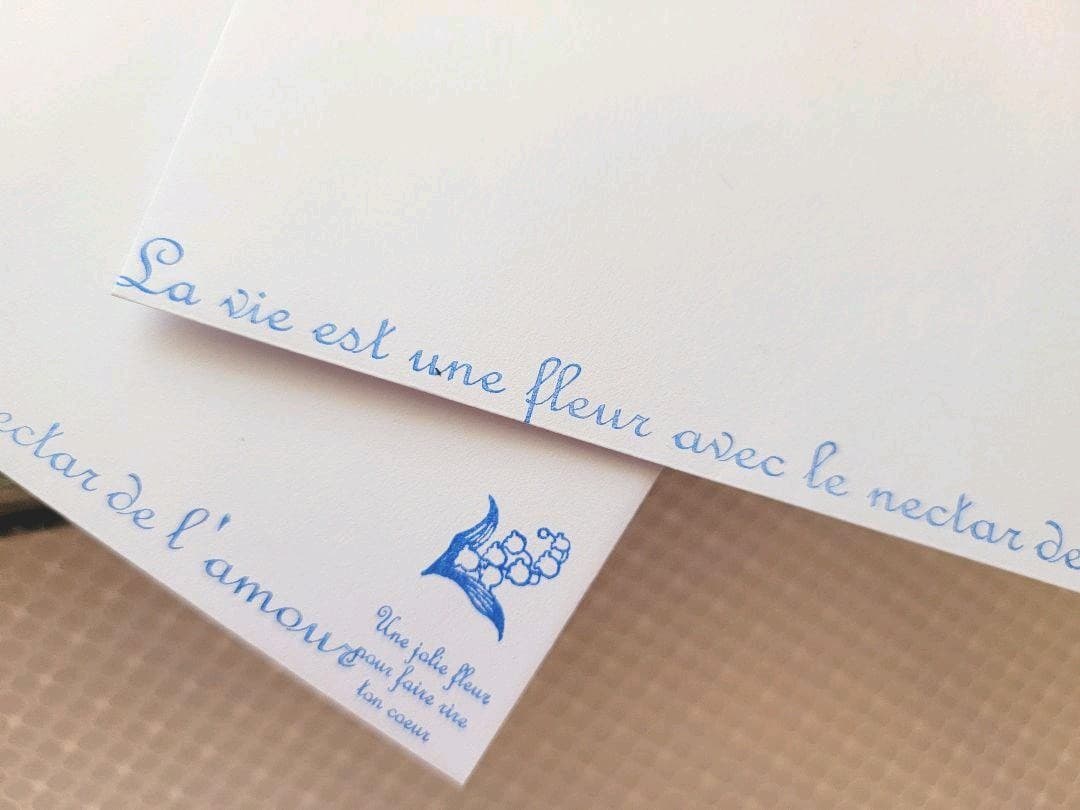 La vie est une fleur avec le nectar de
nectar de l'amour
Une jolie fleur
pour faire rire
ton coeur